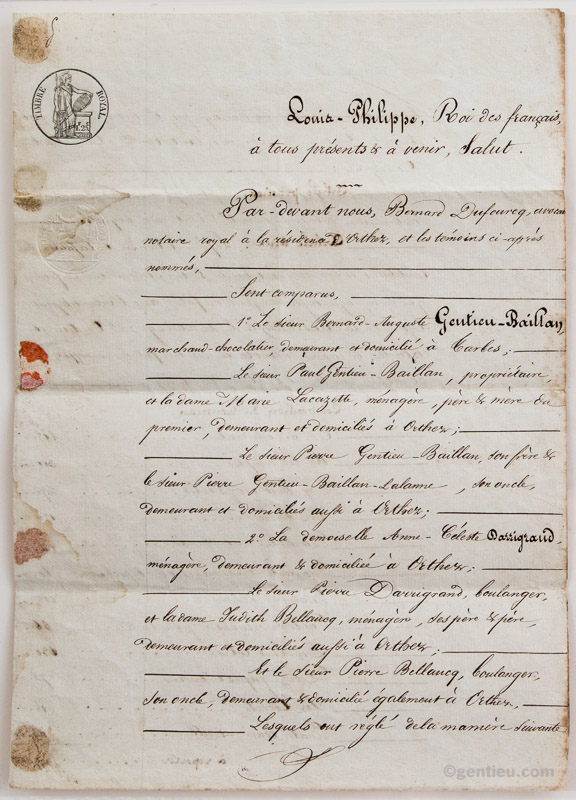 TIMBRE ROYAL
Louis-Philippe, Roi des français,
à tous présents & à venir, Salut.
Par-devant nous, Bernard Dufourcq,
notaire royal à la résidence d'Orthez, et les témoins ci-après
nommés,
Sont comparus,
1º Le sieur Bernard-Auguste Gentieu-Baillan,
marchand-chocolatier, demeurant et domicilié à Tarbes;
Le sieur Paul Gentieu-Baillan, propriétaire,
et la dame Marie Lacazette, ménagère, père & mère du
premier, demeurant et domiciliés à Orthez;
Le sieur Pierre Gentieu-Baillan, son frère &
le sieur Pierre Gentieu-Baillan-Lalanne, son oncle,
demeurant et domiciliés aussi à Orthez;
2º La demoiselle Anne-Céleste Darrigrand,
ménagère, demeurant & domiciliée à Orthez;
Le sieur Pierre Darrigrand, boulanger,
et la dame Judith Bellaucq, ménagère, ses père & père,
demeurant et domiciliés aussi à Orthez;
Et le sieur Pierre Bellaucq, boulanger,
son oncle, demeurant & domicilié également à Orthez,
Lesquels ont réglé de la manière suivante
©gentieu.com